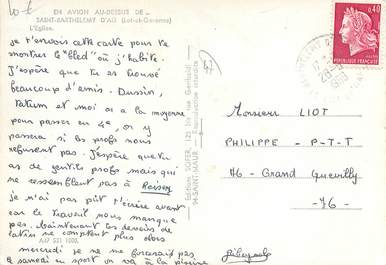 EN AVION AU-DESSUS DE ...
SAINT-BARTHELEMY D'AG (Lot-et-Garonne)
L'Eglise.
je t'envois cette carte pour te
montrer le "bled" où j'habite.
J'espère que tu as trouvé
beaucoup d'amis. Dussin,
et moi as a la moyenne
pour passer en 4e, on y
passera si les profs nous
refusent pas. j'espère que tu
as de gentils profs mais qui
ne ressemblent pas à
je n'ai pas pût t'écrire avant
car le travail nous manque
pas. Maintenant les devoirs de
latins ne comptent plus alors
mercredi je ne me
samedi en sport on va à la piscine
A.17 SEI 1000.
47
Editions SOFER, 125 bis, rue Garibaldi
94-SAINT-MAUR
0,40
REPUBLIQUE FRANÇAISE
Monsieur LIOT
PHILIPPE - P-T-T
76 - Grand Quevilly
- 76 -